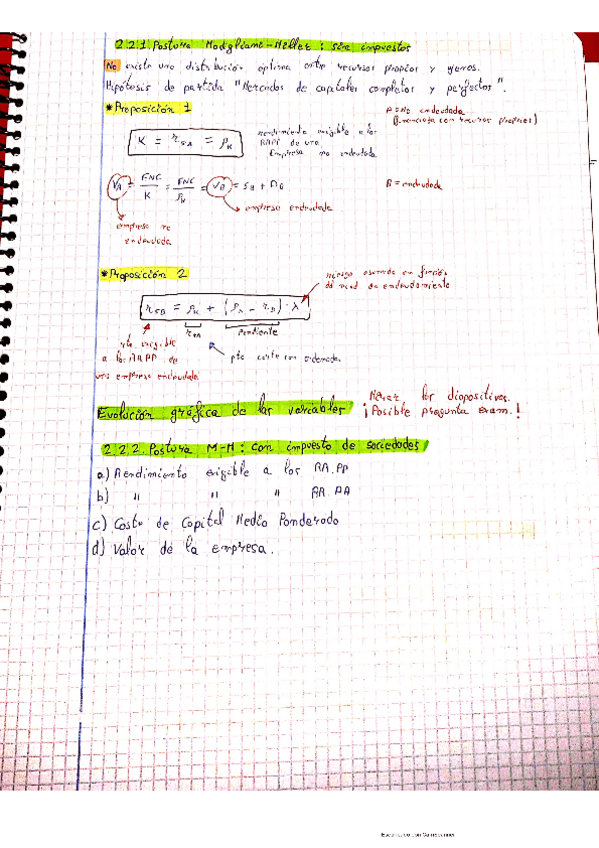 2.2.1. Postura Modigliani-Miller: sin impuestos
No existe una distribución óptima entre recursos propios y ajenos.
Hipótesis de partida "Mercados de capitales completos y perfectos".
* Proposición 1
A = No endeudada
(financiada con recursos propios)
K = r_SA = ρ_K
rendimiento exigible a los
RRPP de una
Empresa no endeudada
V_A = FNC/K = FNC/ρ_K = V_B = S_B + D_B
B = endeudada
empresa endeudada
empresa no
endeudada
* Proposición 2
riesgo asumido en función
del nivel de endeudamiento
r_SB = ρ_K + (ρ_K - r_D) · λ
r_SA
Pendiente
rto exigible
a los RRPP de
una empresa endeudada
pto corte con ordenadas
Evolución gráfica de las variables
Mirar las diapositivas.
¡Posible pregunta exam.!
2.2.2. Postura M-M: con impuesto de sociedades
a) Rendimiento exigible a los RR.PP
b) " " " RR.AA
c) Coste de Capital Medio Ponderado
d) Valor de la empresa.
Escaneado con CamScanner